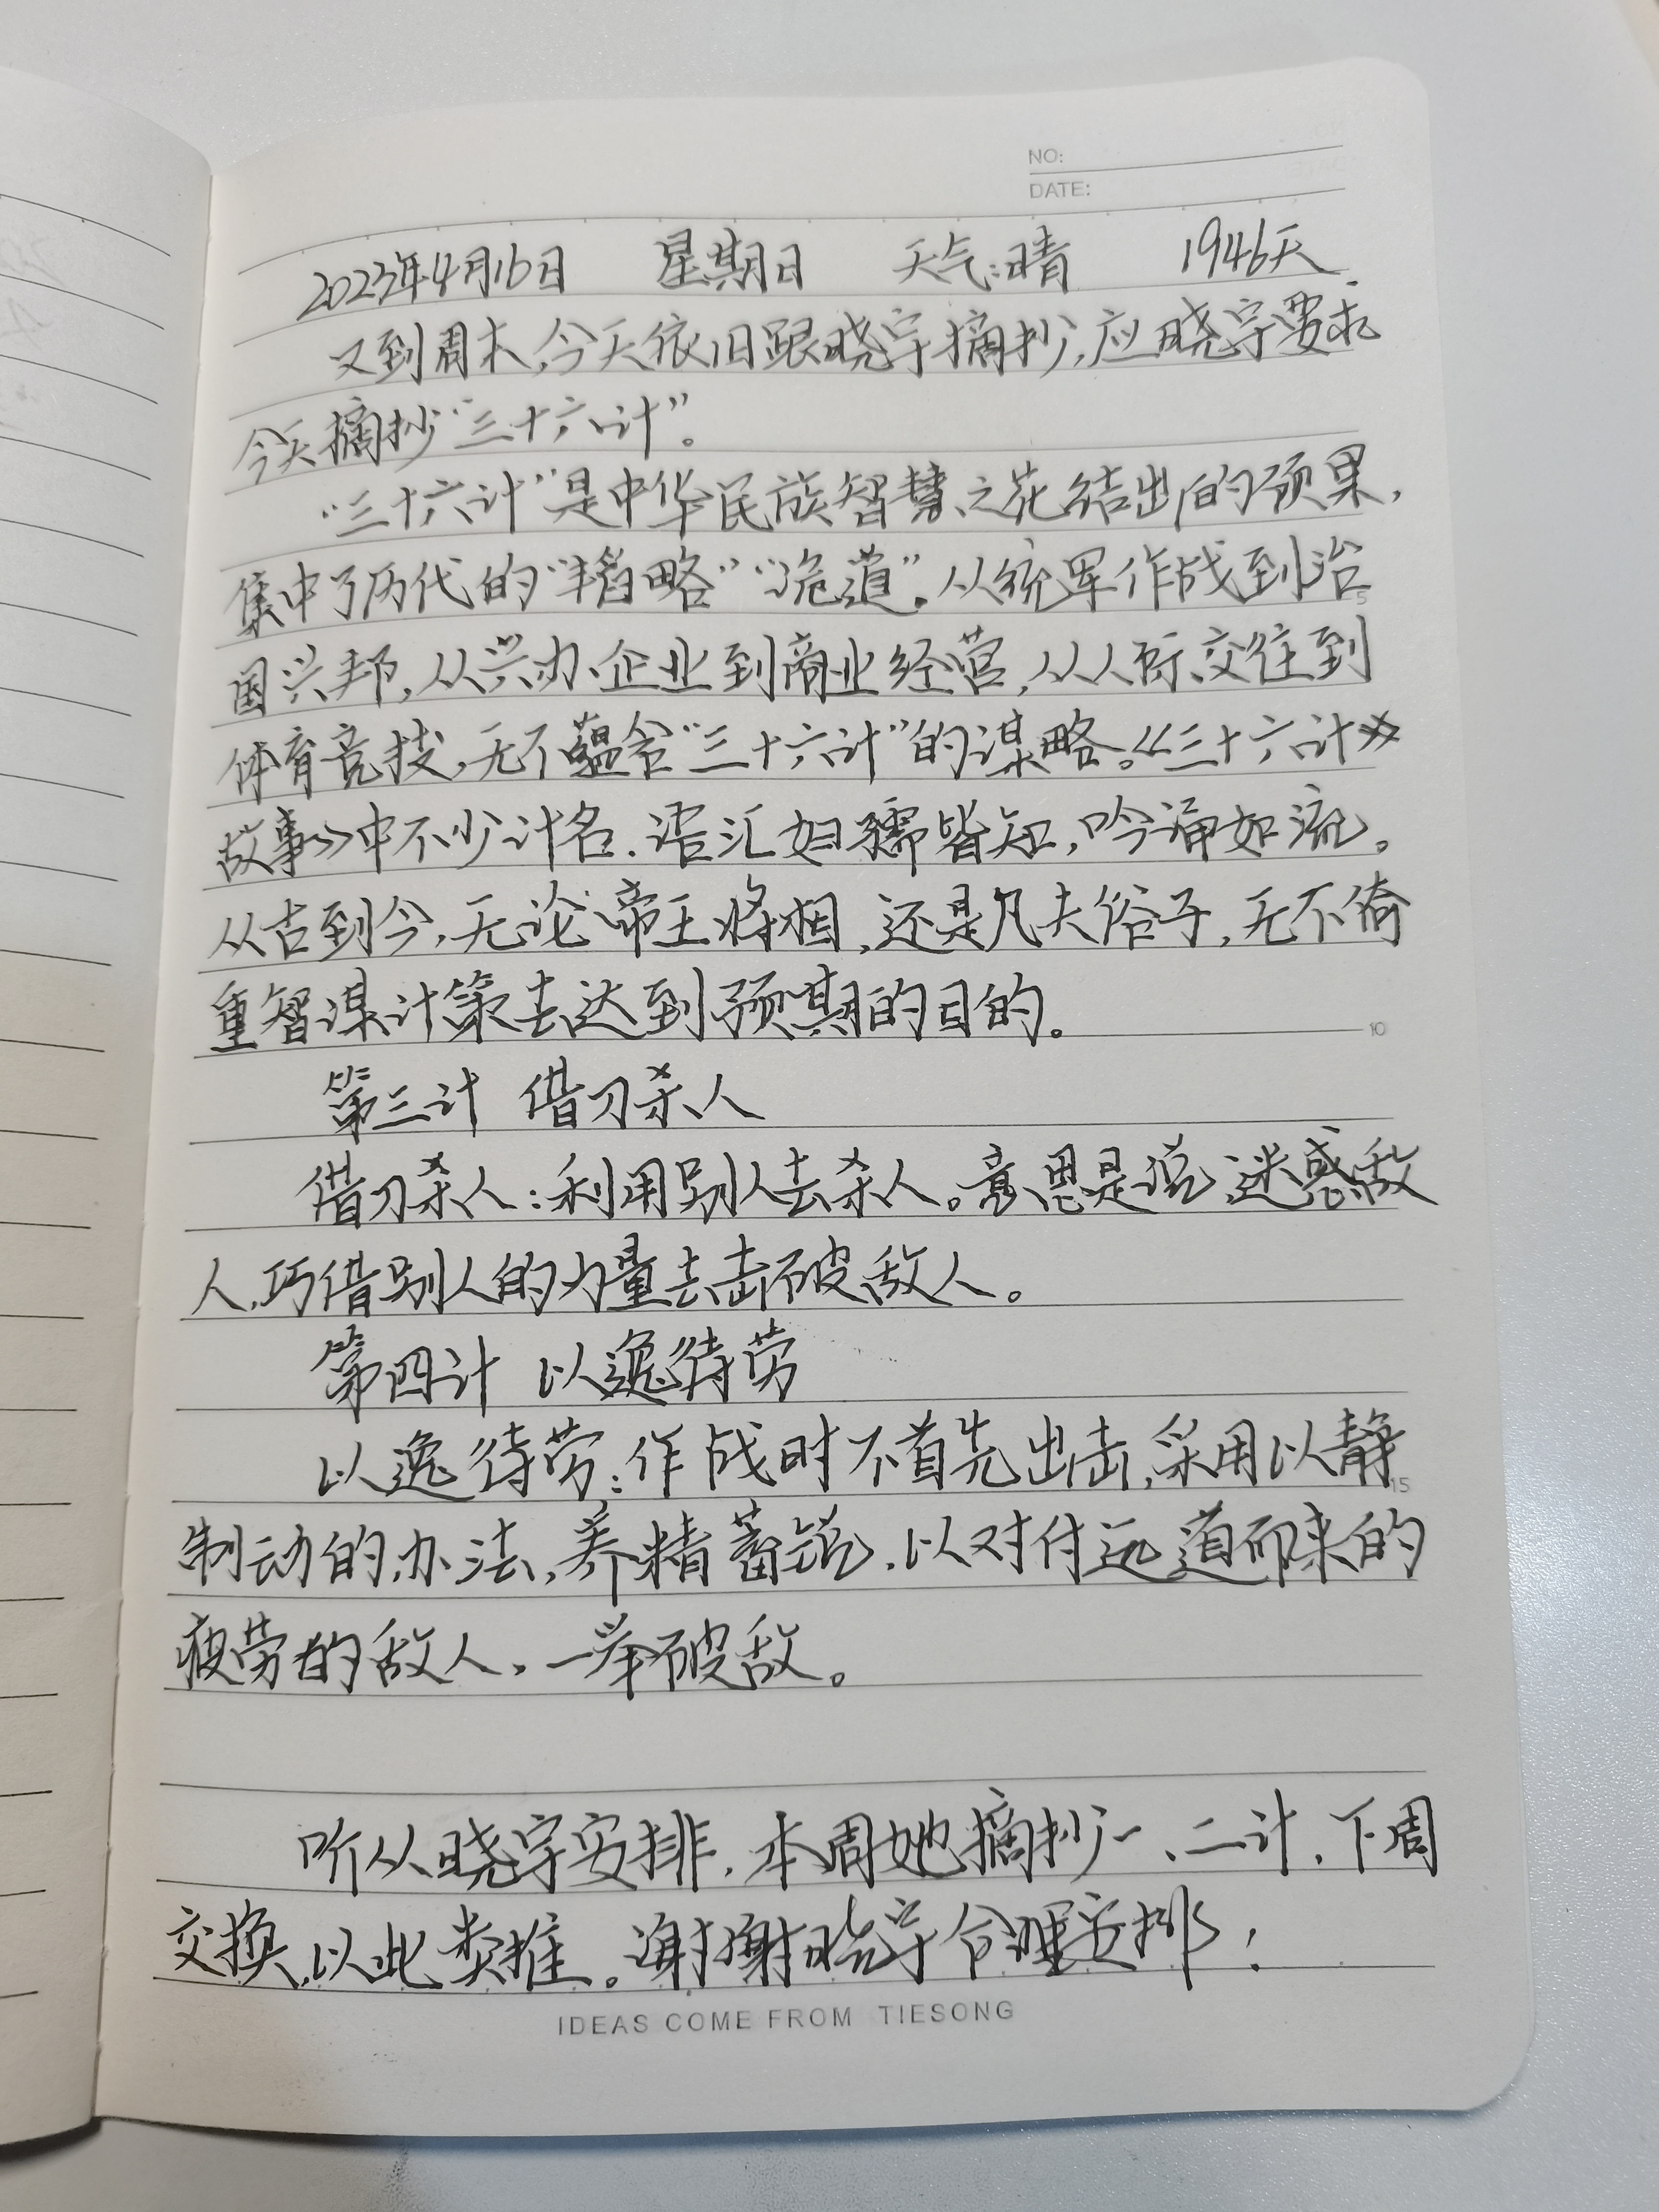 NO:
DATE:
2023年4月16日 星期日 天气:晴 1946天
又到周末,今天依旧跟晓宇摘抄,应晓宇要求
今天摘抄“三十六计”。
“三十六计”是中华民族智慧之花结出的硕果,
集中了历代的“韬略”“诡道”。从统军作战到治
国兴邦,从兴办企业到商业经营,从人际交往到
体育竞技,无不蕴含“三十六计”的谋略。《三十六计
故事》中不少计名、语汇妇孺皆知,吟诵如流。
从古到今,无论帝王将相,还是凡夫俗子,无不倚
重智谋计策去达到预期的目的。
第三计 借刀杀人
借刀杀人:利用别人去杀人。意思是说迷惑敌
人,巧借别人的力量去击破敌人。
第四计 以逸待劳
以逸待劳:作战时不首先出击,采用以静
制动的办法,养精蓄锐,以对付远道而来的
疲劳的敌人,一举破敌。
听从晓宇安排,本周她摘抄一、二计,下周
交换,以此类推。谢谢晓宇合理安排!
5
10
15
IDEAS COME FROM TIESONG